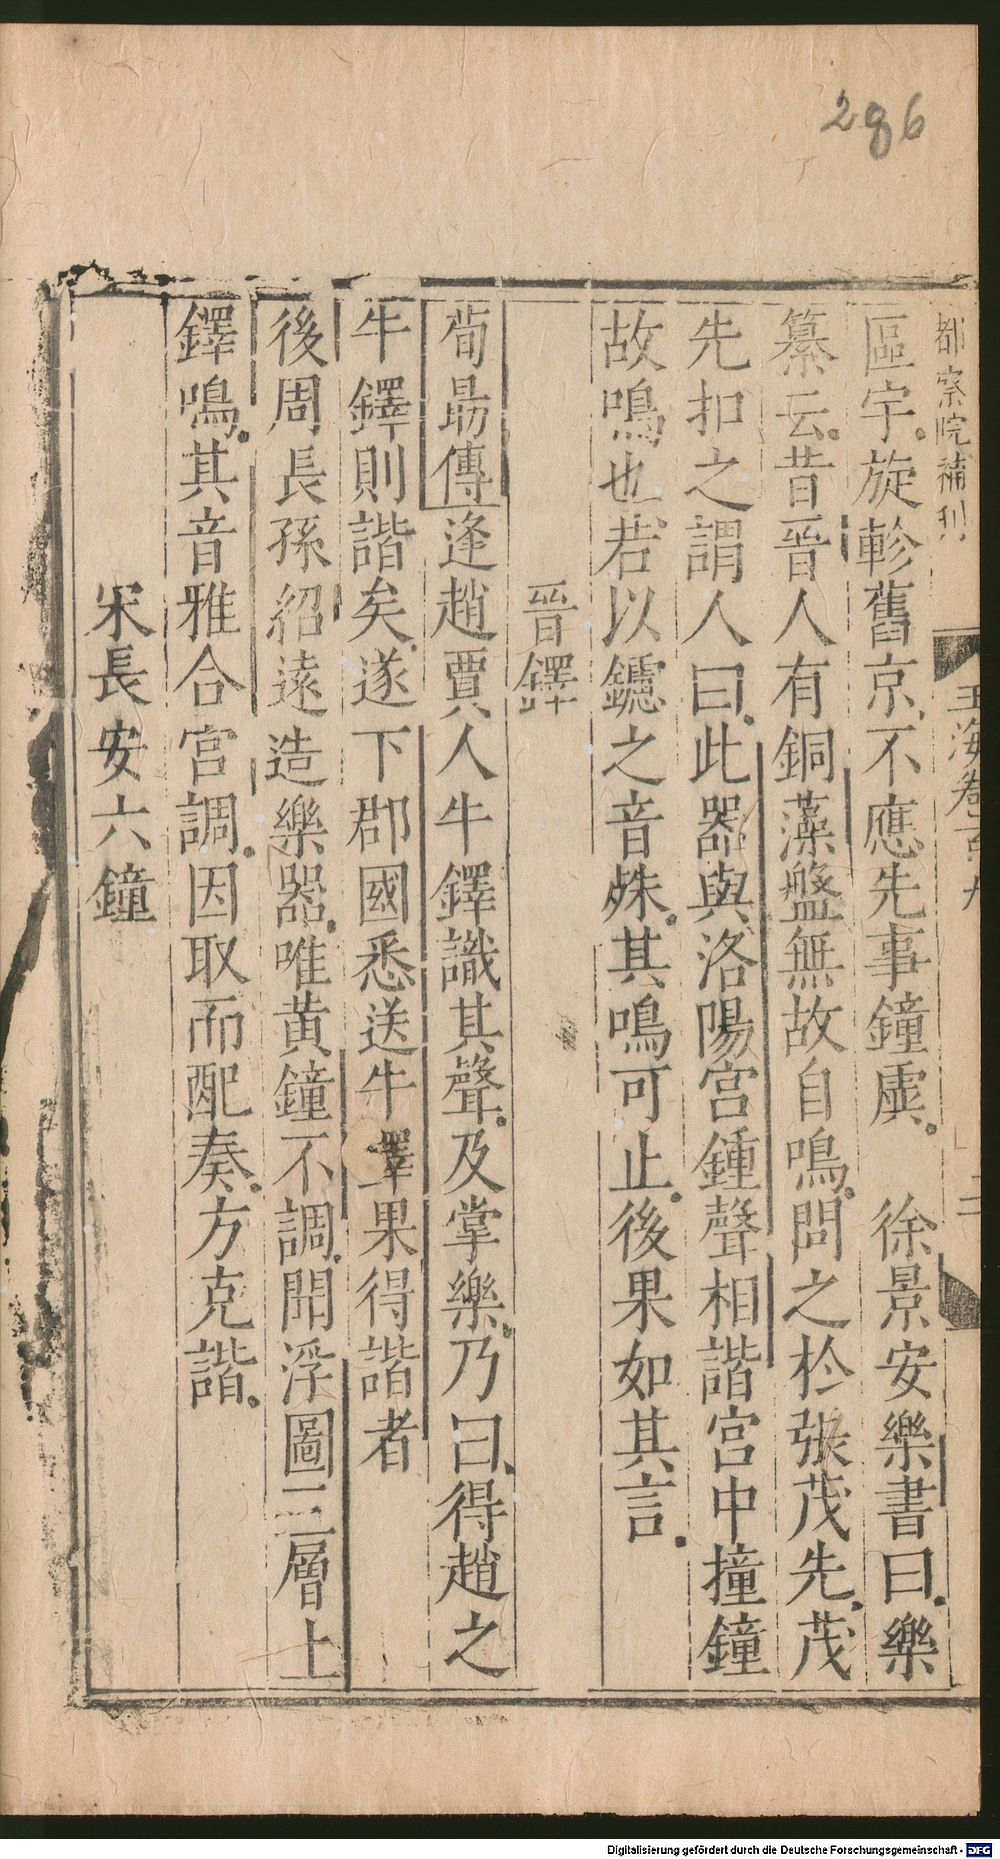 286
都察院補刊
玉海卷百九
二
區宇旋軫舊京不應先事鐘虡 徐景安樂書曰樂
纂云昔晉人有銅藻盤無故自鳴問之於張茂先茂
先扣之謂人曰此器與洛陽宮鍾聲相諧宮中撞鐘
故鳴也若以鑢之音殊其鳴可止後果如其言
晉鐸
荀勗傳逢趙賈人牛鐸識其聲及掌樂乃曰得趙之
牛鐸則諧矣遂下郡國悉送牛鐸果得諧者
後周長孫紹遠造樂器唯黃鐘不調聞浮圖三層上
鐸鳴其音雅合宮調因取而配奏方克諧
宋長安六鐘
Digitalisierung gefördert durch die Deutsche Forschungsgemeinschaft - DFG